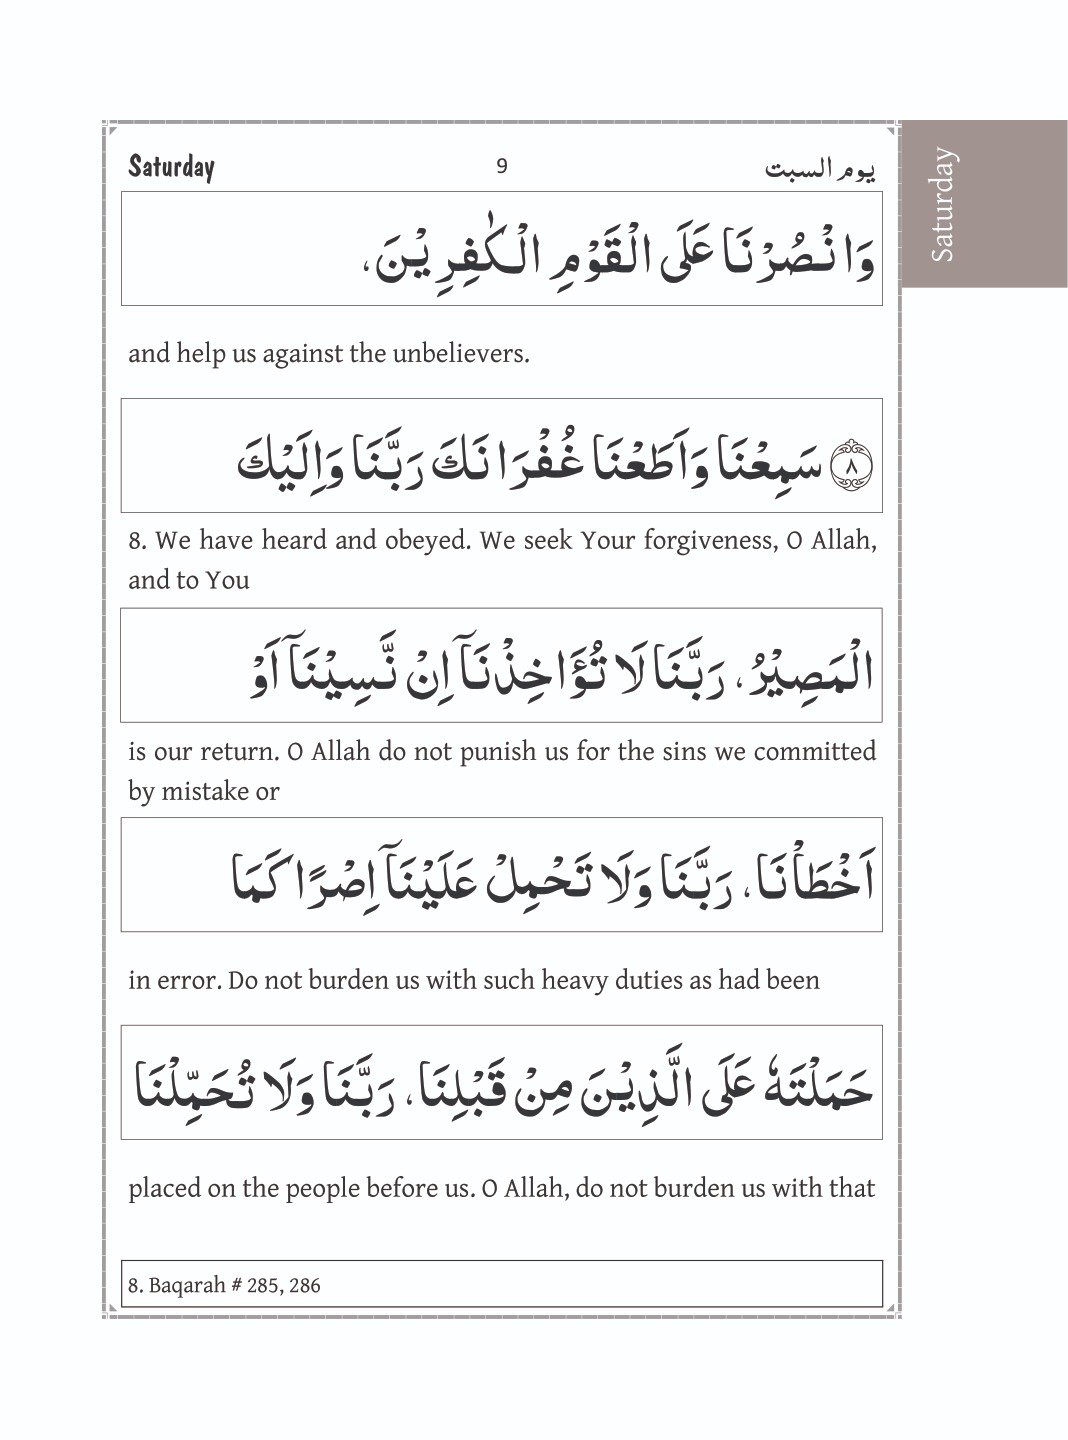 Saturday 9 يوم السبت
Saturday
وَانْصُرْنَا عَلَى الْقَوْمِ الْكٰفِرِيْنَ،
and help us against the unbelievers.
﴿٨﴾ سَمِعْنَا وَاَطَعْنَا غُفْرَانَكَ رَبَّنَا وَاِلَيْكَ
8. We have heard and obeyed. We seek Your forgiveness, O Allah,
and to You
الْمَصِيْرُ، رَبَّنَا لَا تُؤَاخِذْنَآ اِنْ نَّسِيْنَآ اَوْ
is our return. O Allah do not punish us for the sins we committed
by mistake or
اَخْطَاْنَا، رَبَّنَا وَلَا تَحْمِلْ عَلَيْنَآ اِصْرًا كَمَا
in error. Do not burden us with such heavy duties as had been
حَمَلْتَهٗ عَلَى الَّذِيْنَ مِنْ قَبْلِنَا، رَبَّنَا وَلَا تُحَمِّلْنَا
placed on the people before us. O Allah, do not burden us with that
8. Baqarah # 285, 286